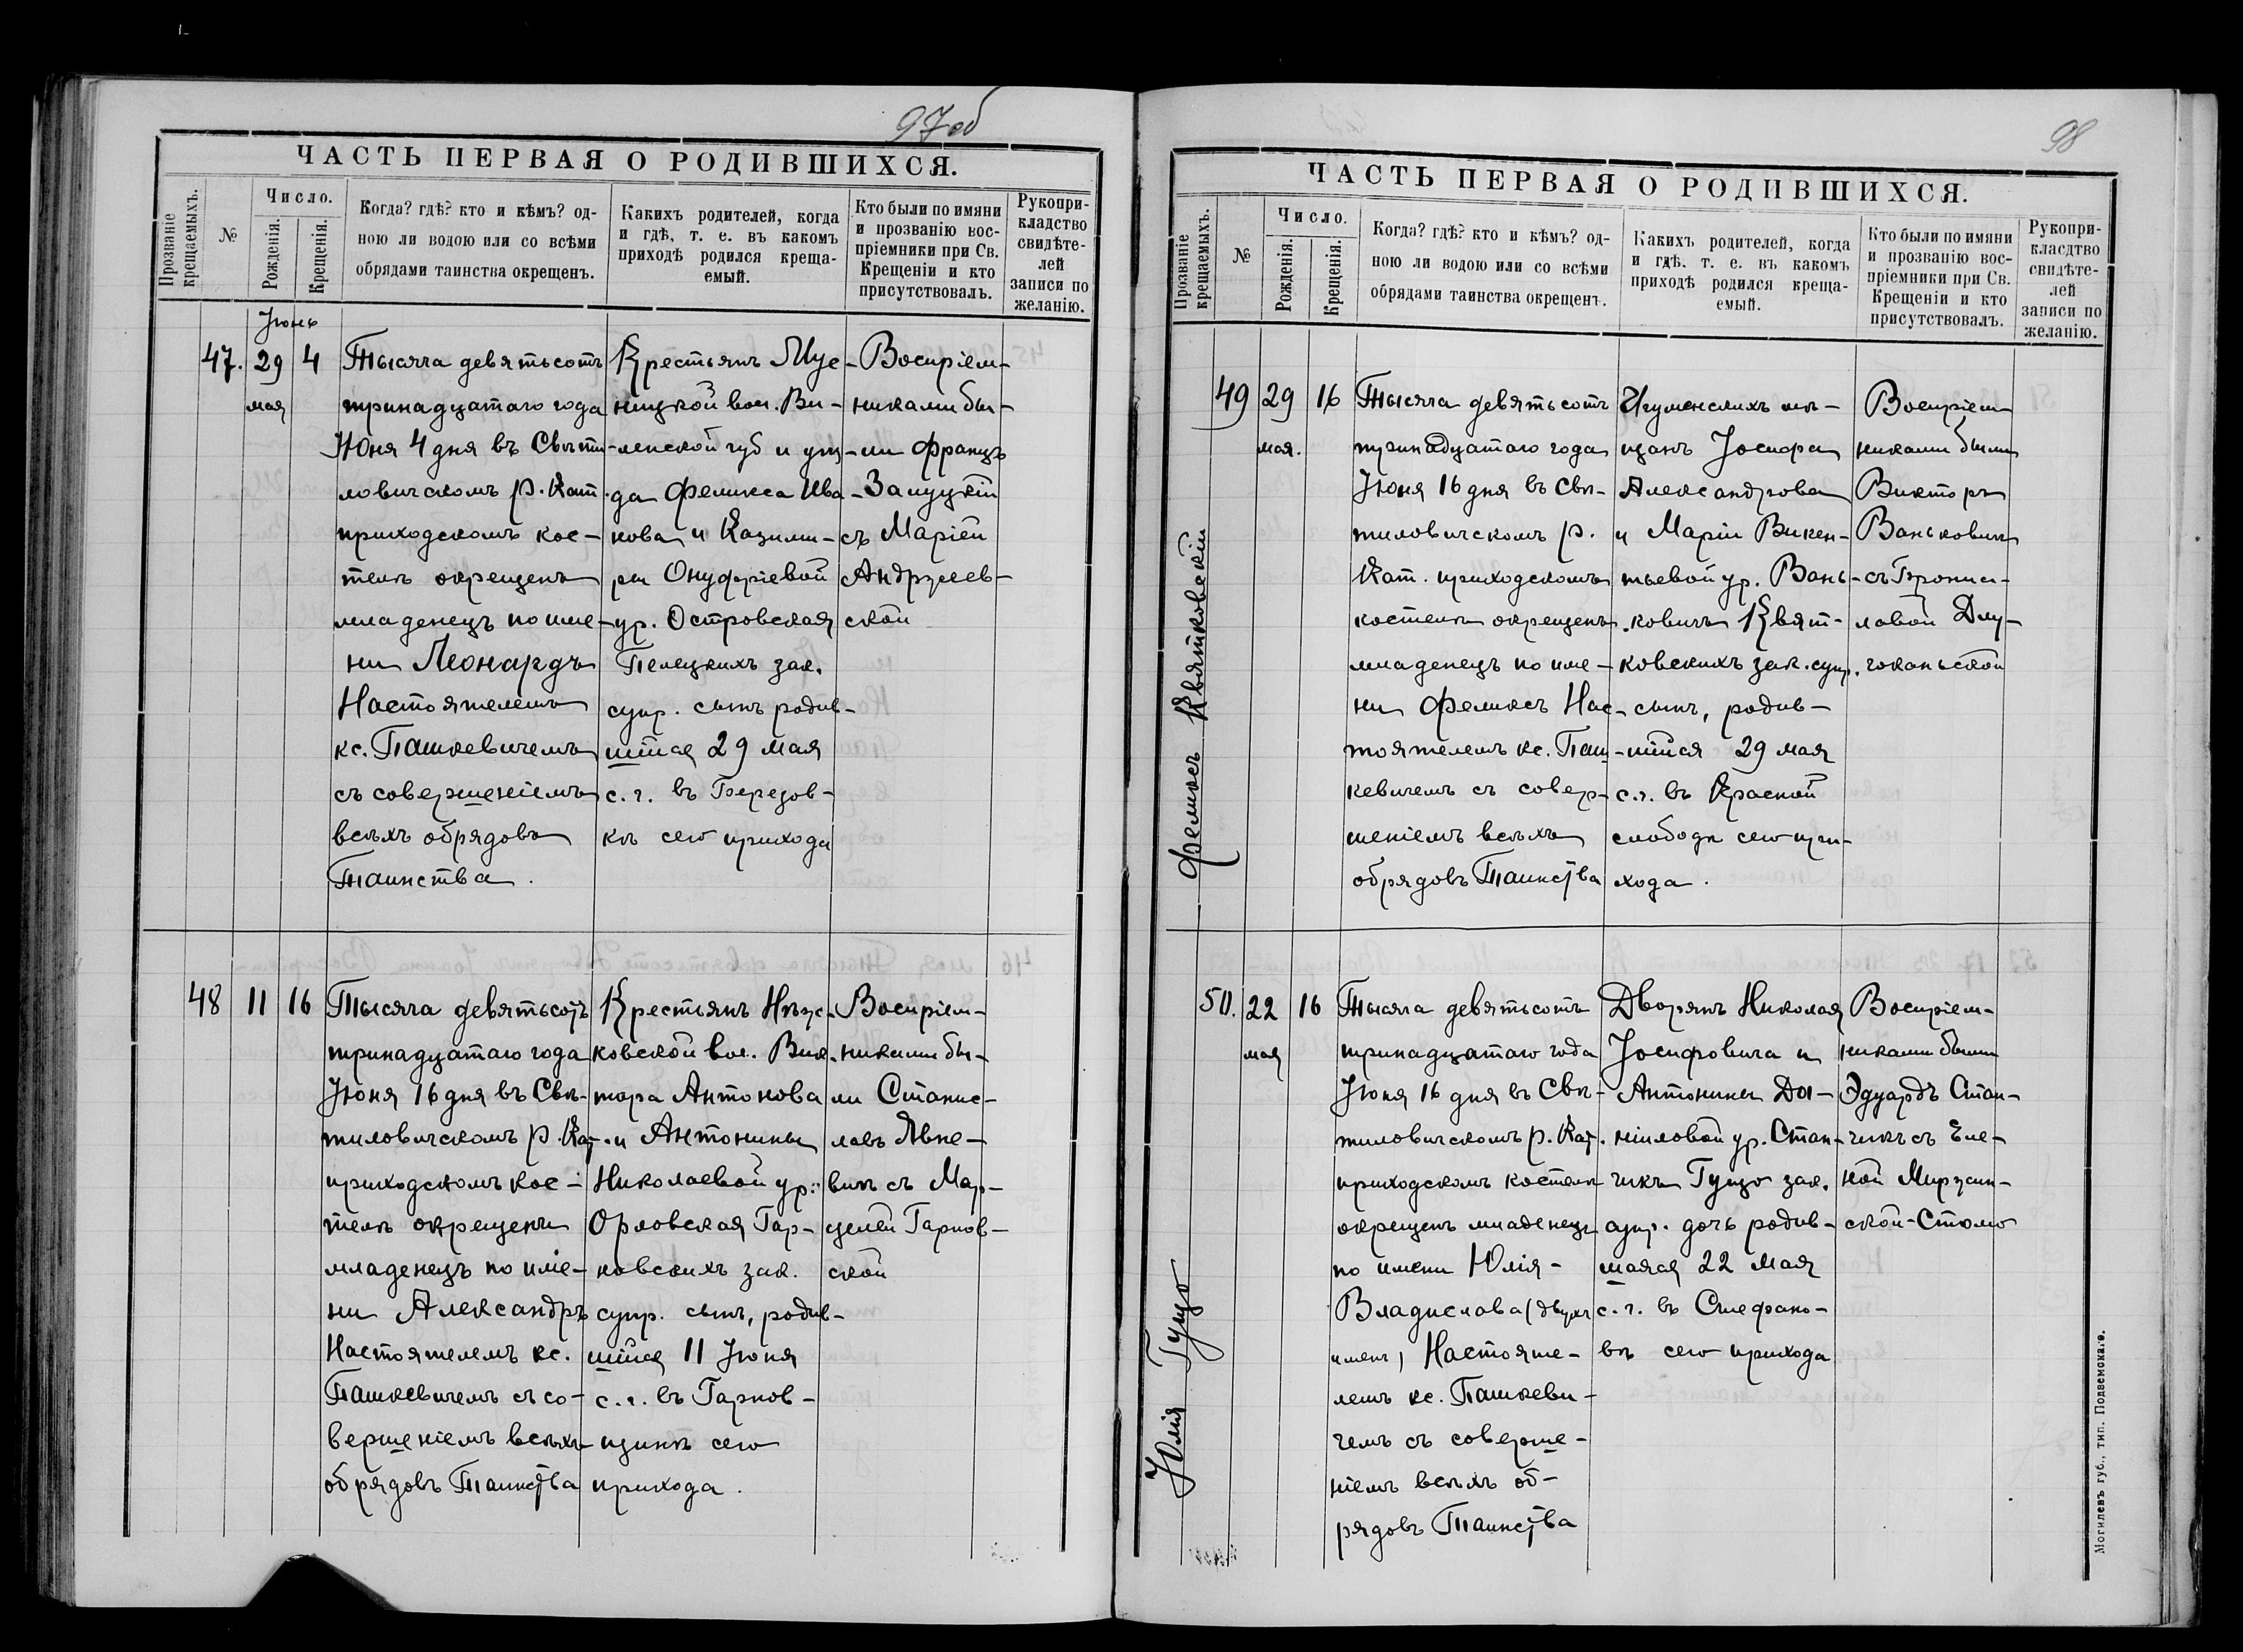 97об
ЧАСТЬ ПЕРВАЯ О РОДИВШИХСЯ.
Прозваніе крещаемыхъ.
№
Число.
Рожденія.
Крещенія.
Когда? гдѣ? кто и кѣмъ? од-
ною ли водою или со всѣми
обрядами таинства окрещенъ.
Какихъ родителей, когда
и гдѣ, т. е. въ какомъ
приходѣ родился креща-
емый.
Кто были по имяни
и прозванію вос-
пріемники при Св.
Крещеніи и кто
присутствовалъ.
Рукопри-
кладство
свидѣте-
лей
записи по
желанію.
Іюнь
47. 29 4
мая
Тысяча девятьсотъ
тринадцатаго года
Июня 4 дня въ Свѣти-
ловичскомъ р. Кат.
приходскомъ кос-
телѣ окрещенъ
младенецъ по име-
ни Леонардъ
Настоятелемъ
кс. Пашкевичемъ
съ совершеніемъ
всѣхъ обрядовъ
Таинства.
Крестьянъ Мус-
ницкой вол. Ви-
ленской губ и уѣз-
да Феликса Ива-
нова и Казими-
ры Онуфріевой
ур. Островская
Пелецкихъ зак.
супр. сынъ родив-
шійся 29 мая
с. г. въ Березов-
кѣ сего прихода
Воспріем-
никами бы-
ли Францъ
Залуцкій
съ Маріей
Андржеев-
ской
48 11 16
Тысяча девятьсотъ
тринадцатаго года
Іюня 16 дня въ Свѣ-
тиловичскомъ р. Кат.
приходскомъ кос-
телѣ окрещенъ
младенецъ по име-
ни Александръ
Настоятелемъ кс.
Пашкевичемъ съ со-
вершеніемъ всѣхъ
обрядовъ Таинства
Крестьянъ
ковской вол. Вик-
тора Антонова
и Антонины
Николаевой ур.
Орловская Гар-
новскихъ зак.
супр. сынъ, родив-
шійся 11 Іюня
с. г. въ Гарнов-
щинѣ сего
прихода.
Воспріем-
никами бы-
ли Станис-
лавъ Явне-
вичъ съ Мар-
целей Гарнов-
ской
98
ЧАСТЬ ПЕРВАЯ О РОДИВШИХСЯ.
Прозваніе крещаемыхъ.
№
Число.
Рожденія.
Крещенія.
Когда? гдѣ? кто и кѣмъ? од-
ною ли водою или со всѣми
обрядами таинства окрещенъ.
Какихъ родителей, когда
и гдѣ. т. е. въ какомъ
приходѣ родился креща-
емый.
Кто были по имяни
и прозванію вос-
пріемники при Св.
Крещеніи и кто
присутствовалъ.
Рукопри-
класдтво
свидѣте-
лей
записи по
желанію.
Феликсъ Квятковскій
49 29 16
мая.
Тысяча девятьсотъ
тринадцатаго года
Іюня 16 дня въ Свѣ-
тиловичскомъ р.
Кат. приходскомъ
костелѣ окрещенъ
младенецъ по име-
ни Феликсъ Нас-
тоятелемъ кс. Паш-
кевичемъ съ совер-
шеніемъ всѣхъ
обрядовъ Таинства
Игуменскихъ мѣ-
щанъ Іосифа
Александрова
и Маріи Викен-
тьевой ур. Вань-
ковичъ Квят-
ковскихъ зак. супр.
сынъ, родив-
шійся 29 мая
с. г. въ Красной
слободѣ сего при-
хода.
Воспріем
никами были
Викторъ
Ваньковичъ
съ Брониси-
лавой Длу-
гоканьской
Юлія Гуцо
50. 22 16
мая
Тысяча девятьсотъ
тринадцатаго года
Іюня 16 дня въ Свѣ-
тиловичскомъ р. Кат.
приходскомъ костелѣ
окрещенъ младенецъ
по имени Юлія-
Владислава (двухъ
именъ) Настояте-
лемъ кс. Пашкеви-
чемъ съ соверше-
ніемъ всѣхъ об-
рядовъ Таинства
Дворянъ Николая
Іосифовича и
Антонины Да-
ніиловой ур. Стан-
чикъ Гуцо зак.
супр. дочь родив-
шаяся 22 мая
с. г. въ Стефано-
вѣ сего прихода
Воспріем-
никами были
Эдуардъ Стан-
чикъ съ Еле-
ной
ской-Стомо
Могилевъ губ., тип. Подземскаго.